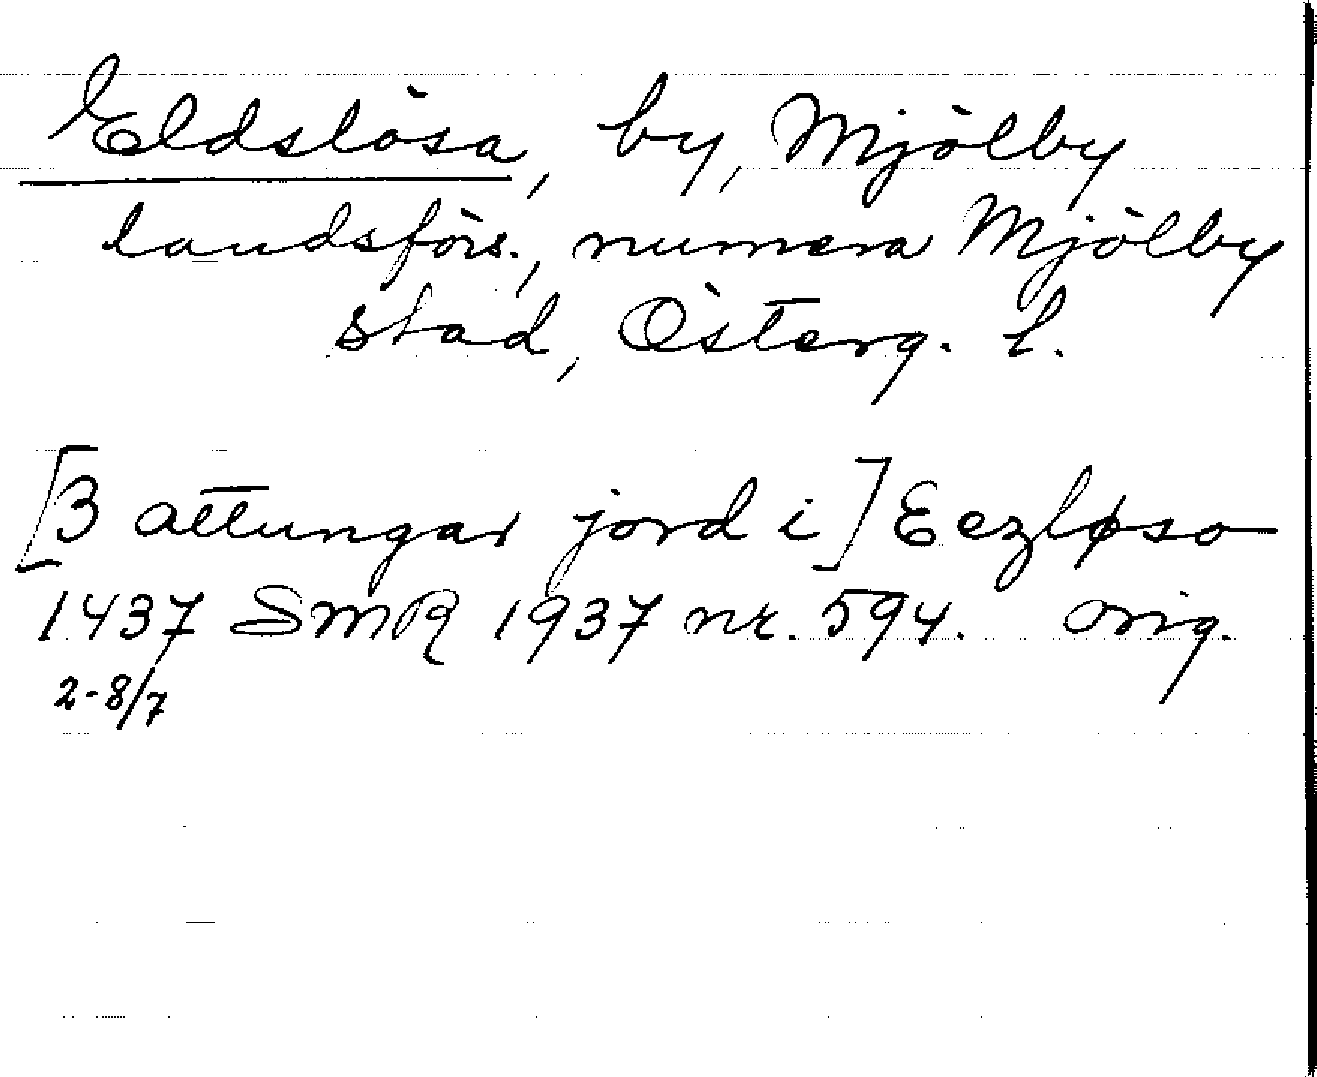 Eldslösa, by, Mjölby
landsförs., numera Mjölby
stad, Österg. l.
[3 attungar jord i] Eezløso
1437 SMR 1937 nr. 594. orig.
2-8/7